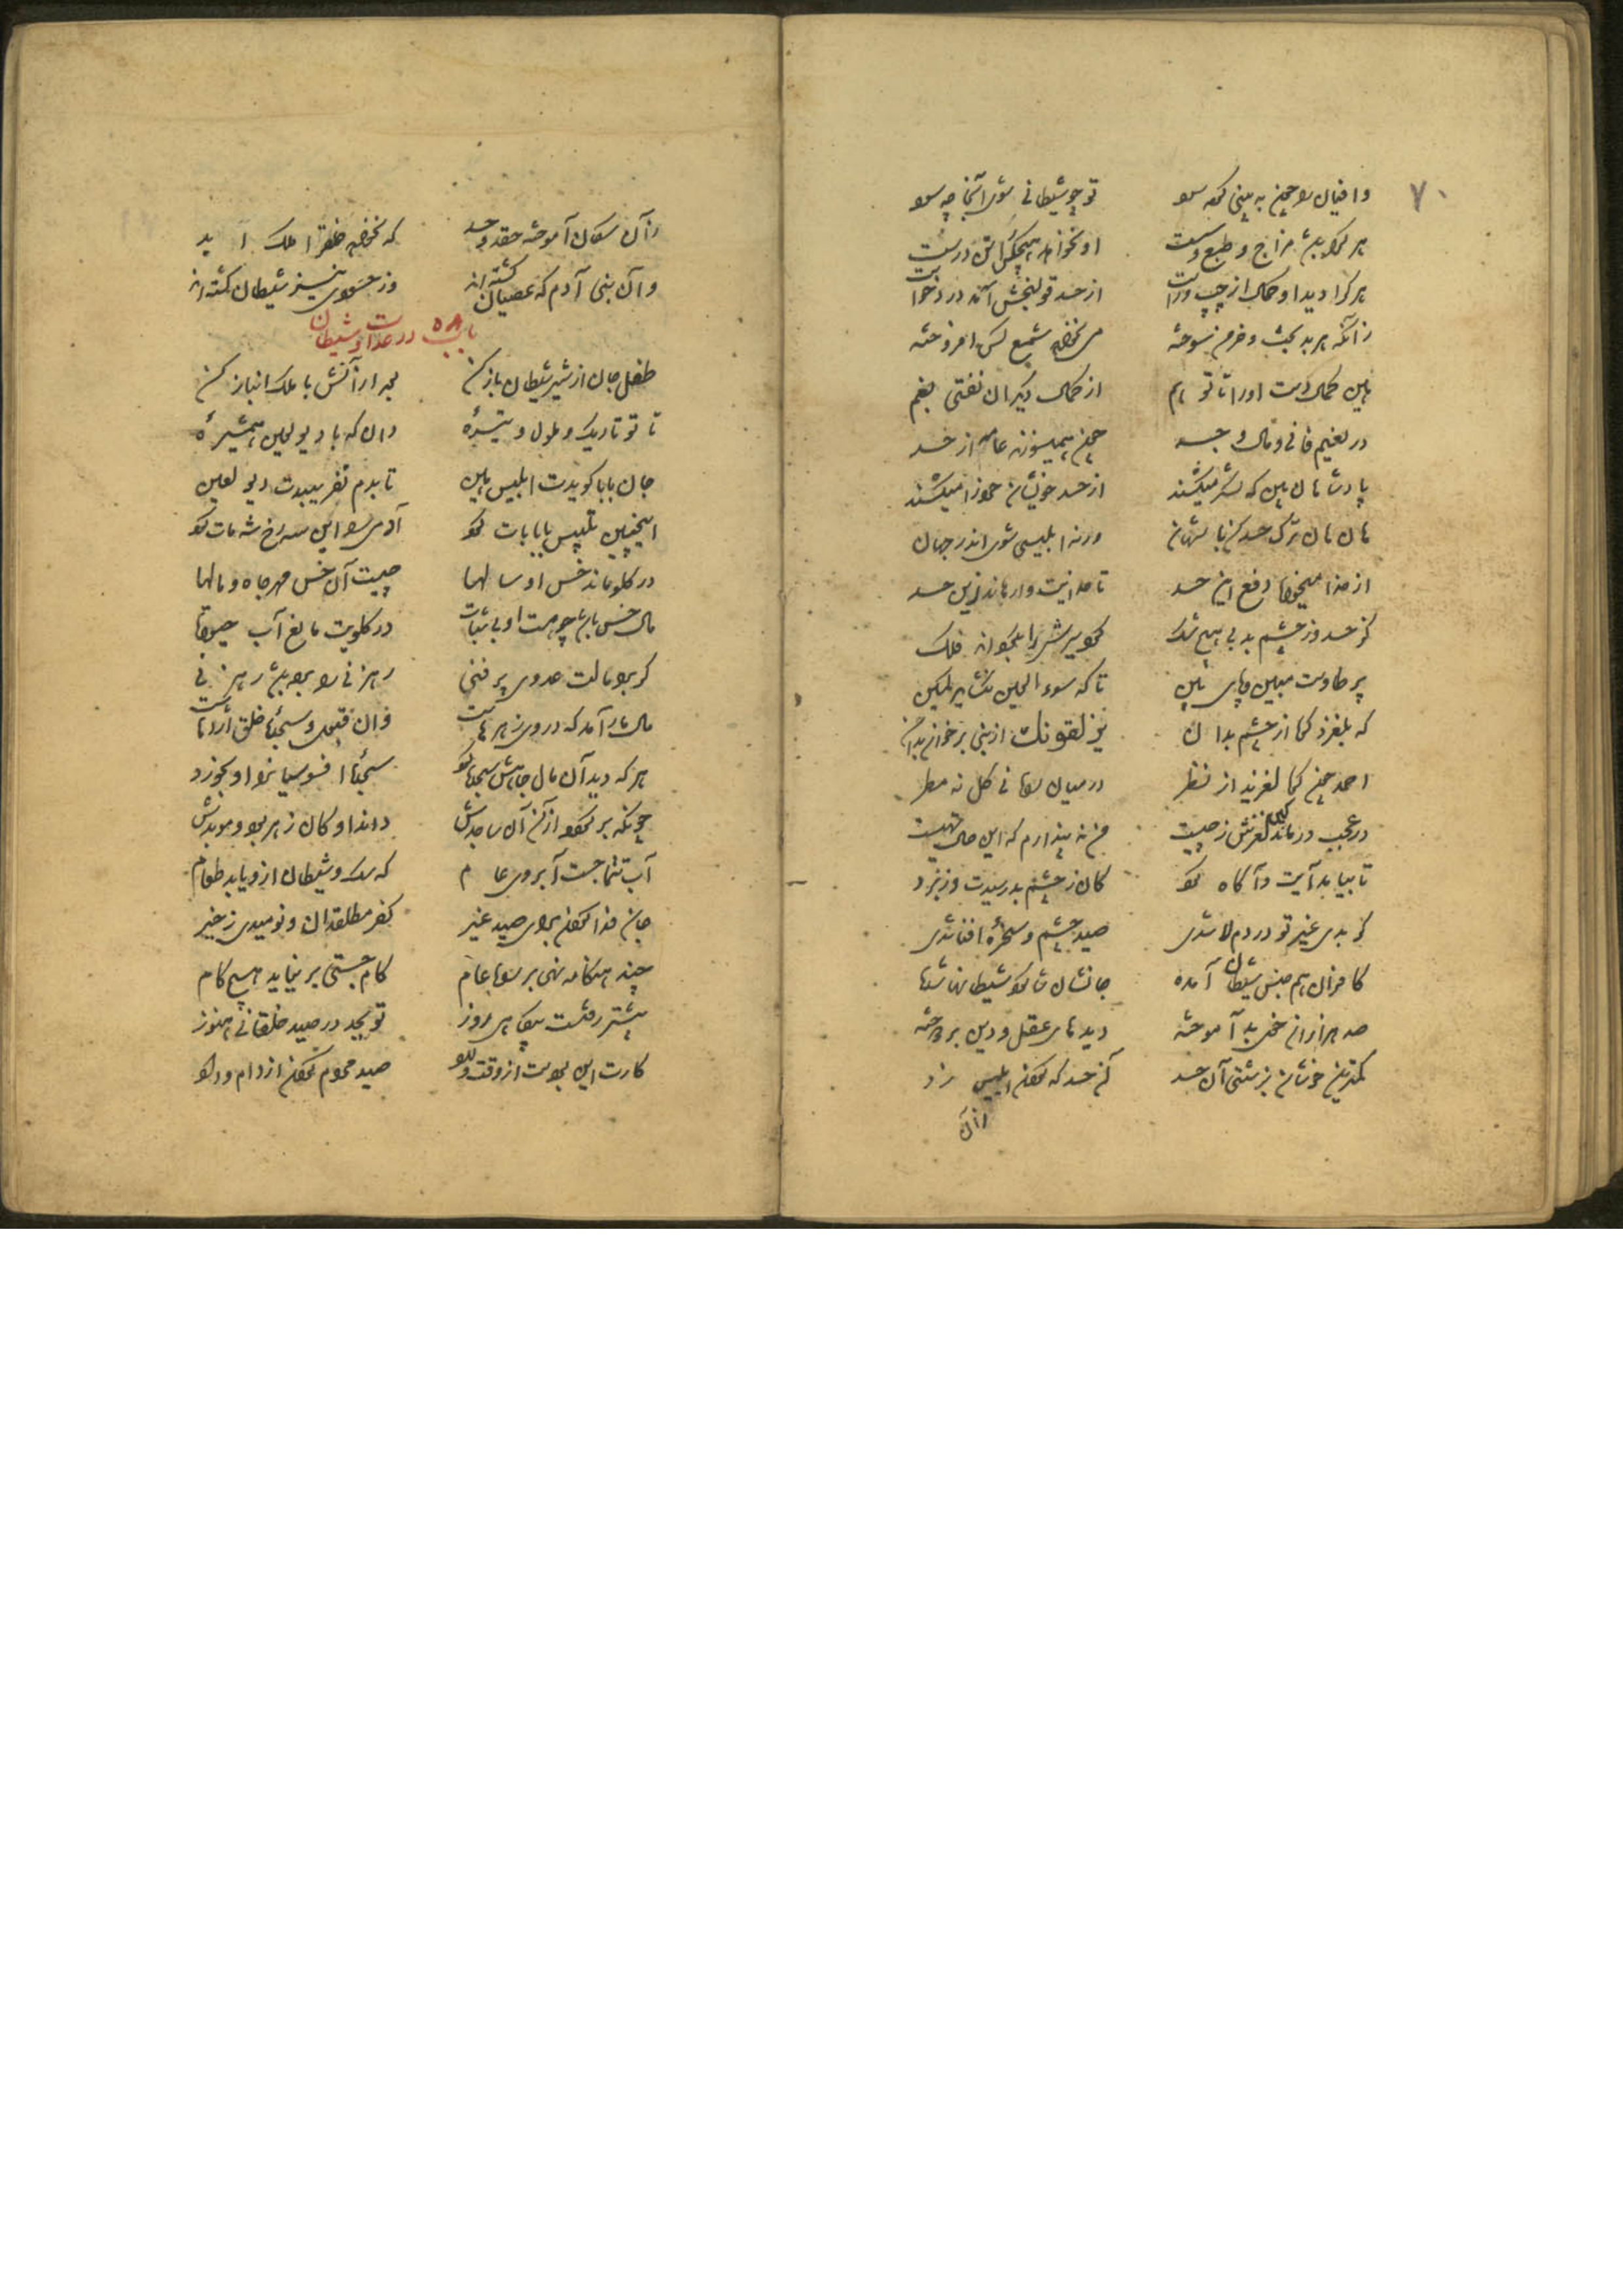 ۷۰
وافیان را چون ببینی کرده سود تو چو شیطانی شوی آنجا حسود
هر کرا باشد مزاج و طبع سست او نخواهد هیچکس را تن درست
هر کرا دید او کمال از چپ و راست از حسد قولنجش آمد درد خواست
زانکه هر بدبخت خرمن سوخته می نخواهد شمع کس افروخته
هین کمالی دست آور تا تو هم از کمال دیگران نفتی بغم
در نعیم فانی و مال و جسد چون همیسوزند عامه از حسد
پادشاهان بین که لشکر میکشند از حسد خویشان خود را میکشند
هان هان ترک حسد کن با شهان ورنه ابلیسی شوی اندر جهان
از خدا میخواه دفع این حسد تا خدایت وارهاند زین حسد
کز حسد وز چشم بد بی هیچ شک
پر طاوست مبین و پای بین تا که سوء العین نگشاید کمین
که بلغزد که از چشم بدان یزلقونک از نبی بر خوان بدان
احمد چون که لغزید از نظر در میان راه بی گل نه مطر
در عجب درماند کین لغزش ز چیست من نپندارم که این حالت تهیست
تا بیامد آیت و آگاه کرد کان ز چشم بد رسیدت وز نبرد
گر بدی غیر تو در دم لا شدی صید چشم و سخره افنا شدی
کافران هم جنس شیطان آمده جانشان شاگرد شیطانها شده
صد هزاران خوی بد آموخته دیدهای عقل و دین بردوخته
کمترین خوشان بزشتی آن حسد آن حسد که گردن ابلیس زد
زان
زان سگان آموخته حقد و حسد که نخواهد خلق را ملک ابد
وان بنی آدم که عصیان کشته اند وز حسودی نیز شیطان گشته اند
باب ۵۸ در عداوت شیطان
طفل جان از شیر شیطان باز کن بعد از آنش با ملک انباز کن
تا تو تاریک و ملول و تیرهٔ دان که با دیو لعین همشیرهٔ
جان بابا گویدت ابلیس هین تا بدم بفریبدت دیو لعین
اینچنین تلبیس با بابات کرد آدمی را این سیه رخ شه مات کرد
در گلو ماند خس او سالها چیست آن خس مهر جاه و مالها
مال خس باشد چو هست او بی ثبات در گلویت مانع آب حیات
گر برد مالت عدوی پر فنی رهزنی را برده باشد رهزنی
مال مار آمد که در وی زهرهاست وان قبول و سجده خلق اژدهاست
هر که دید آن مال جاهش سجده کرد سجدها افسوسیانرا او بخورد
چونکه بر گردد ازان آن ساجدش داند او کان زهر بود و موبدش
آب تتماجت آبروی عام که سگ و شیطان ازو یابد طعام
جان فدا کردن برای صید غیر کفر مطلق دان و نومیدی ز خیر
چند هنگامه نهی بر راه عام گام جستی بر نیاید هیچ کام
بیشتر رفتست بیگاه است روز تو بجد در صید خلقانی هنوز
کارت این بودست از وقت ولاد صید مردم کردن از دام وداد